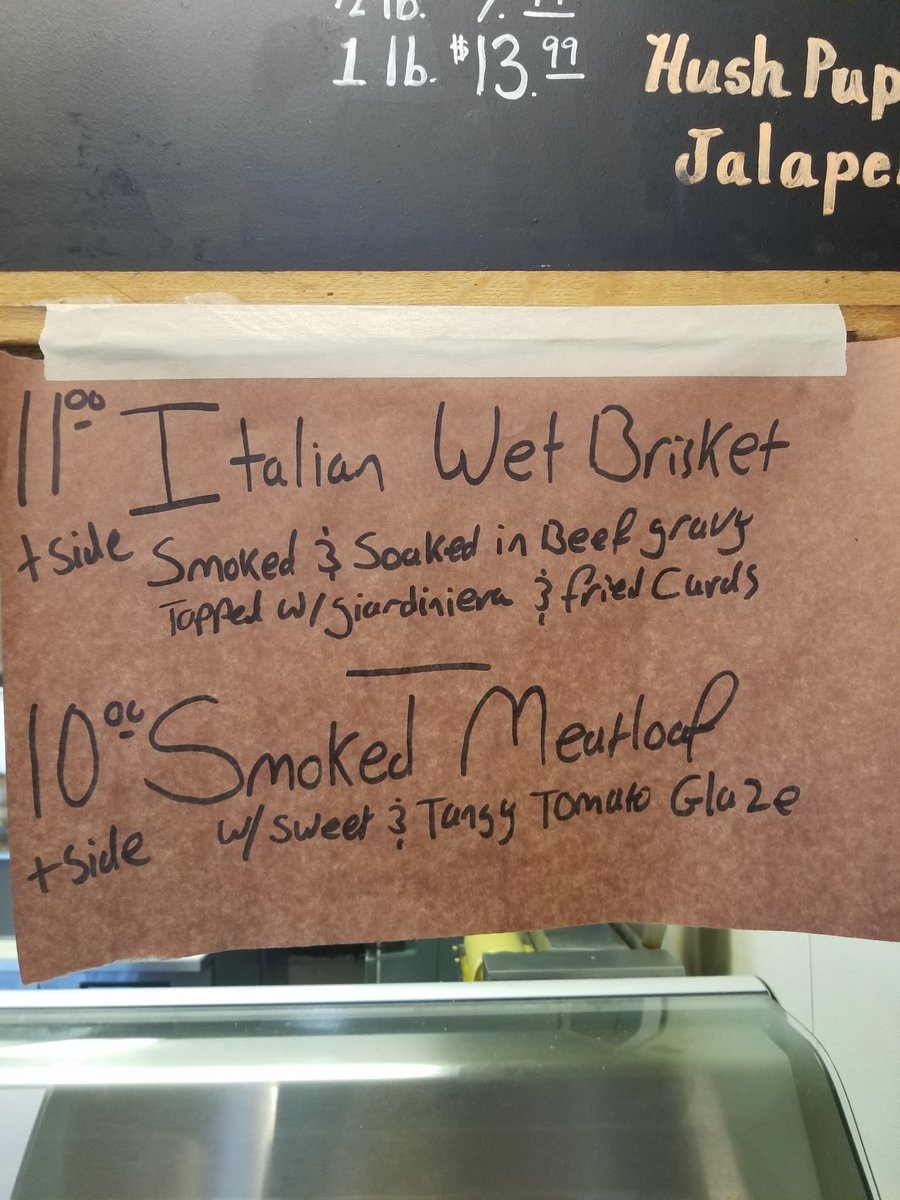 1/2 lb. 7.
1 lb. $13.99
Hush Pup
Jalape
11.00 Italian Wet Brisket
+ side Smoked & Soaked in Beef gravy
Topped w/ giardiniera & fried Curds
10.00 Smoked Meatloaf
+ side w/ sweet & Tangy Tomato Glaze